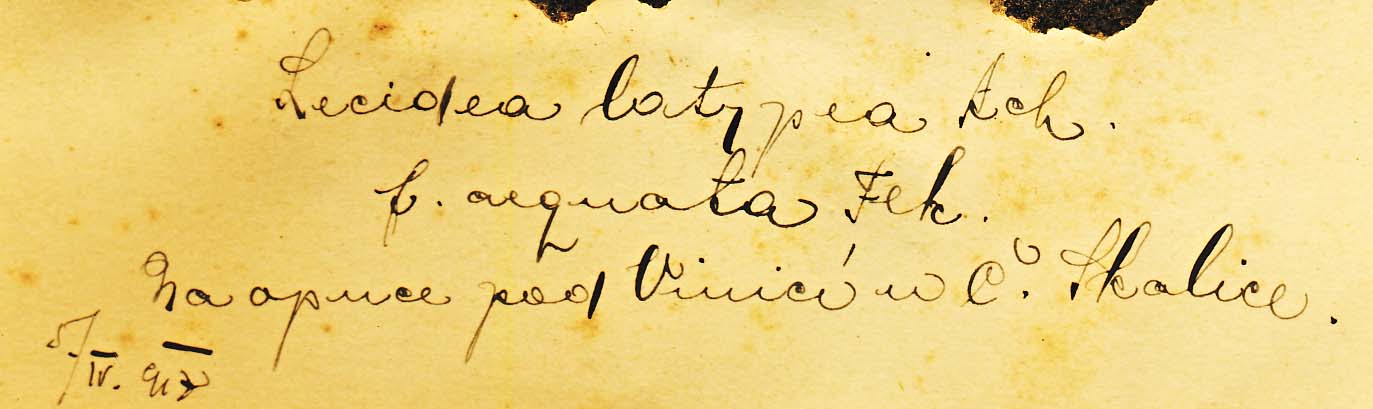 Lecidea latypea Ach.
f. aequata Flk.
Na opuce pod Vinicí u Č. Skalice.
5/IV. 917